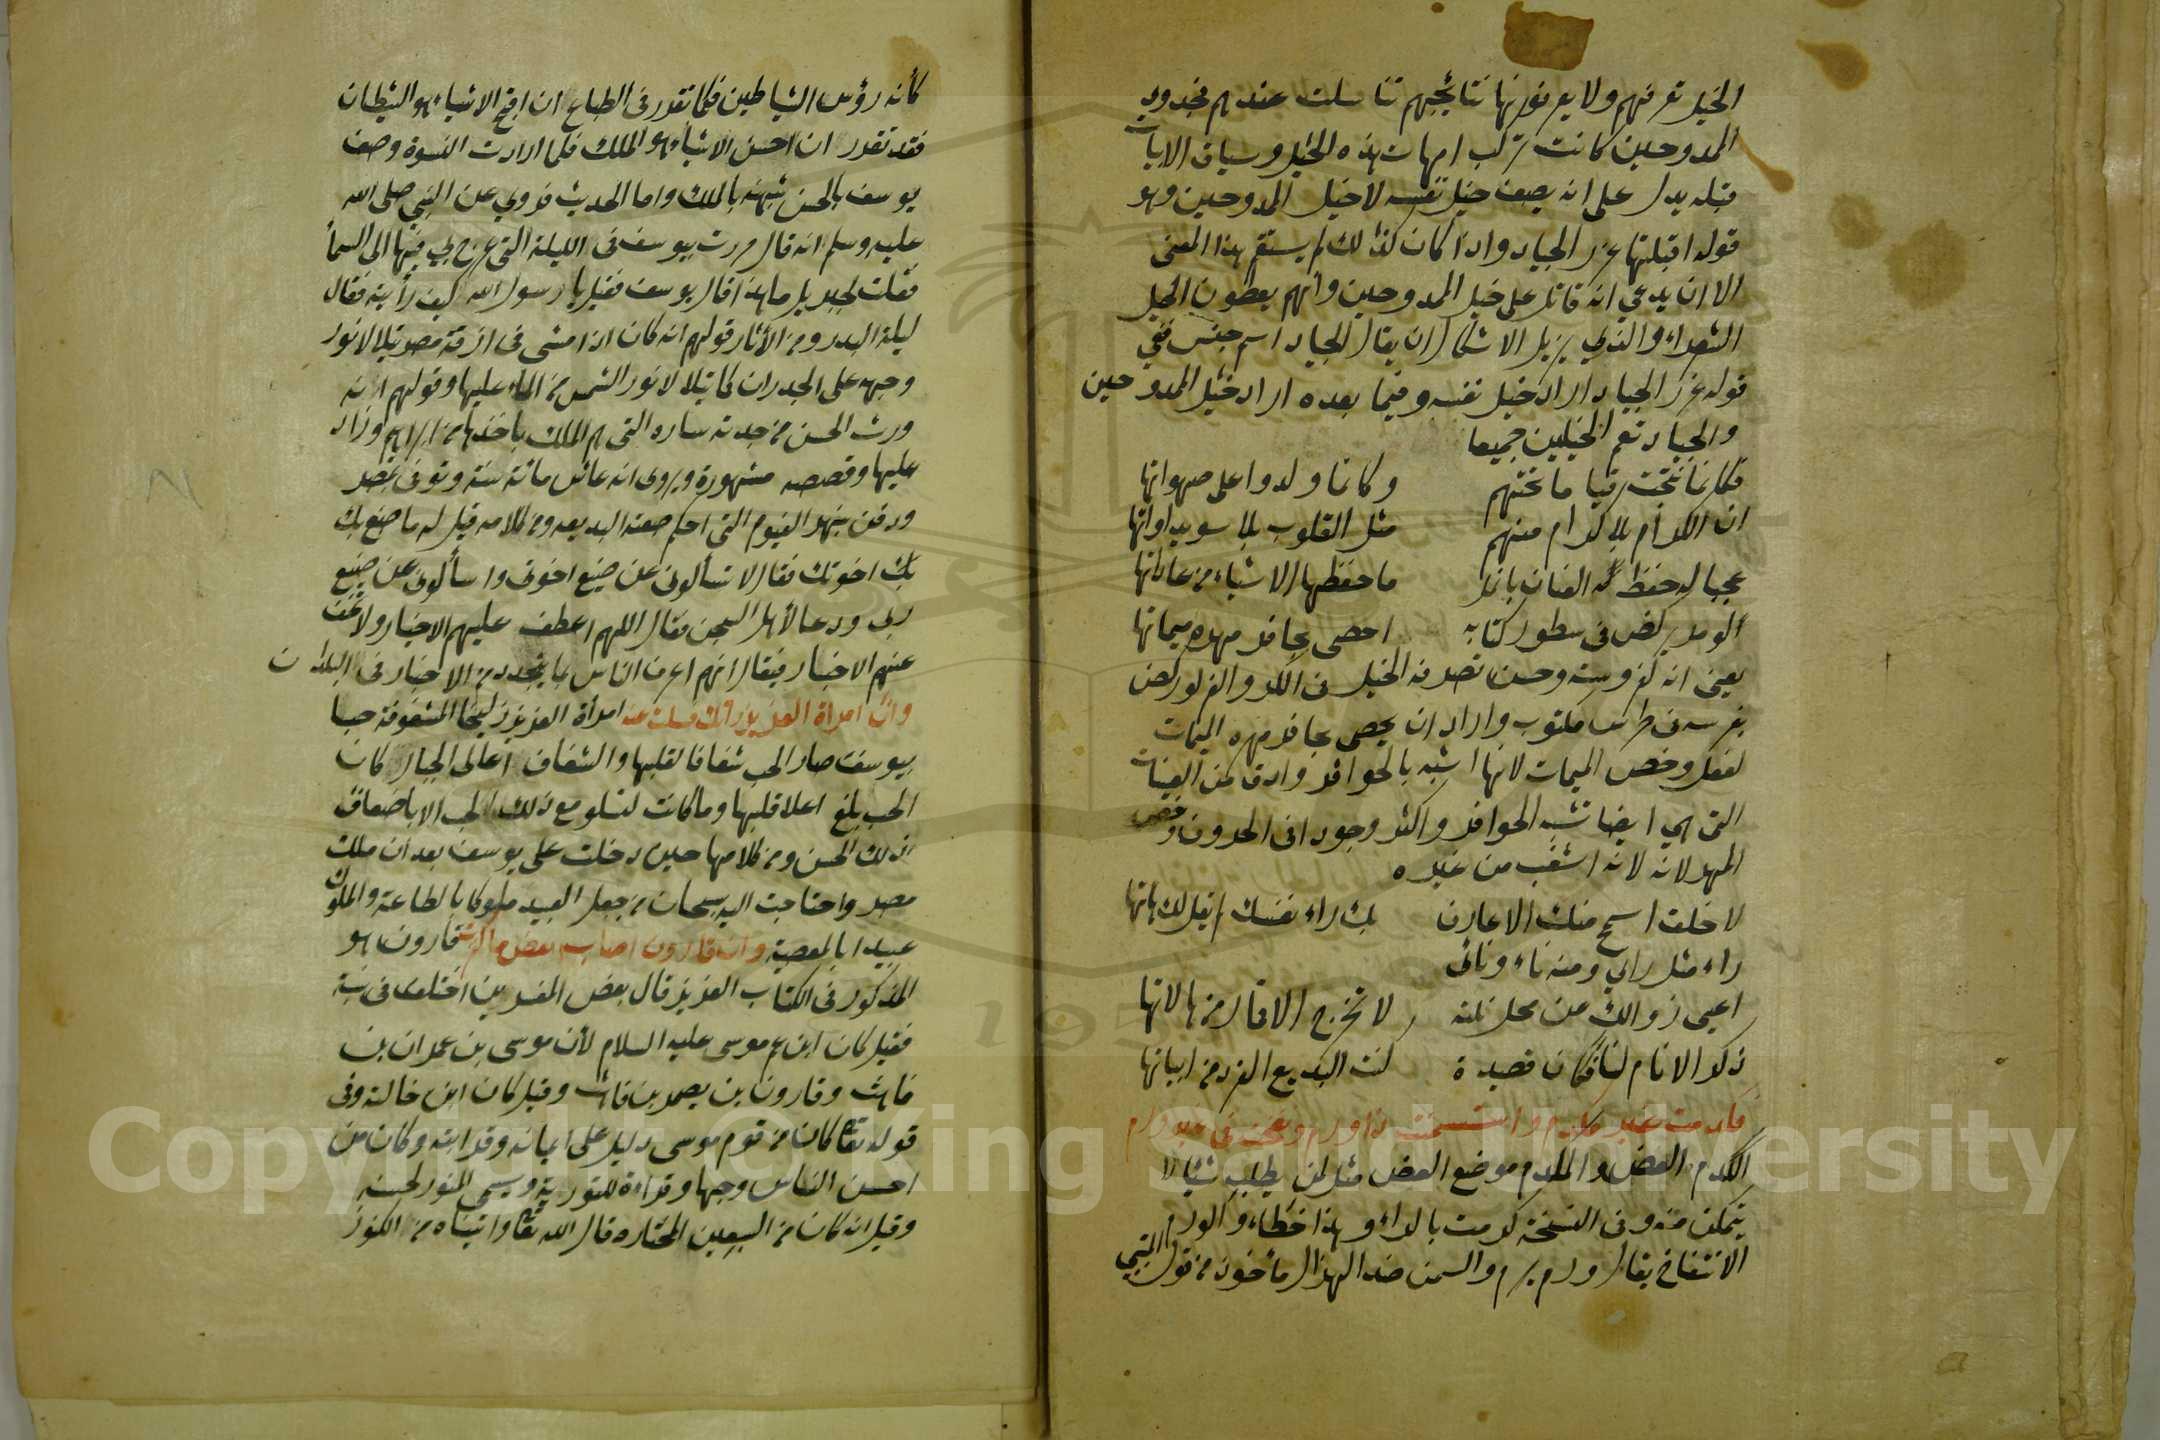 الخيل تعرفهم ولا يعرفونها نتائجهم تناسلت عندهم فجدود
الممدوحين كانت تركب امهات هذه الخيل وسياق الابيات
قبله يدل على انه يصف خيل نفسه لا خيل الممدوحين وهو
قوله اقبلتها غرر الجياد واذا كان كذلك لم يستقم هذا المعنى
الا ان يدعي انه قاتل على خيل الممدوحين وانهم يعطون الخيل
الشعراء والذي يزيل الاشكال ان يقال الجياد اسم جنس ففي
قوله غرر الجياد اراد خيل نفسه وفيما بعده اراد خيل الممدوحين
والجياد تعم الخيلين جميعا
فكانما نتجت قياما تحتهم وكانما ولدوا على صهواتها
ان الكرام بلا كرام منهم مثل القلوب بلا سويداواتها
عجبا له حفظ العنان بانمل ما حفظها الاشياء من عاداتها
لو مر يركض في سطور كتابه احصى بحافر مهره ميماتها
يعني انه لفروسته وحسن تصرفه الخيل في الكر والفر لو ركض
بفرسه في طرس مكتوب واراد ان يحصى بحافر مهره الميمات
لفعل وخص الميمات لانها اشبه بالحوافر وادق من العينات
التي هي ايضا تشبه الحوافر واكثر وجودا في الحروف وخص
المهر لانه لانه اشغب من غيره
لا خلق اسمح منك الا عارف بك راء نفسك لم يقل لك هاتها
راء مثل راى ومنه ناء ونائى
اعيى زوالك عن محل نلته لا تخرج الاقمار من هالاتها
ذكر الانام لنا فكان قصيدة كنت البديع الفرد من ابياتها
فكدمت غير مكدم واستسمنت ذا ورم ونفخت في غير ضرم
الكدم العض والمكدم موضع العض مثل لمن يطلب شيئا لا
يتمكن منه وفي النسخة كرمت بالراء وهذا خطاء والورم
الانتفاخ يقال ورم يرم والسمن ضد الهزال مأخوذ من قول المتنبي
كأنه رؤس الشياطين فكما تقرر في الطباع ان اقبح الاشياء هو الشيطان
فقد تقرر ان احسن الاشياء هو الملك فلما ارادت النسوة وصف
يوسف بالحسن شبهنه بالملك واما الحديث فروي عن النبي صلى الله
عليه وسلم انه قال مررت بيوسف في الليلة التي عرج بي فيها الى السماء
فقلت لجبريل ما هذا قال يوسف فقيل يا رسول الله كيف رأيته فقال
ليلة البدر ومن الأثار قولهم انه كان اذا مشى في ازقة مصر يتلالا نور
وجهه على الجدران كما يتلالا نور الشمس من الماء عليها وقولهم انه
ورث الحسن من جدته ساره التي هم الملك باخذها من ابراهيم وزاد
عليها وقصصه مشهورة ويروى انه عاش مائة سنة وتوفي بمصر
ودفن بنهر الفيوم التي احكم صنعة البديعه ومن كلامه قيل له ما صنع بك
بك اخوتك فقال لا تسألوني عن صنيع اخوتي واسألوني عن صنيع
ربى ودعا لأهل السجن فقال اللهم اعطف عليهم الاخيار ولا تخف
عنهم الاخبار فيقال انهم اعرف الناس بما يتجدد من الاخبار في البلدان
وان امرأة العزيز رأتك فسلت عنه امرأة العزيز زليخا المشغوفة حبا
بيوسف صار الحب شغافا لقلبها والشغاف اعالى الجبال كان
الحب بلغ اعلا قلبها وما كانت لتسلو مع ذلك الحب الا باضعاف
ذلك الحسن ومن كلامها حين دخلت على يوسف بعد ان ملك
مصر واحتاجت اليه سبحان من جعل العبيد ملوكا بالطاعة والملوك
عبيدا بالمعصية وان قارون اصاب بعض ما كنزت قارون هو
المذكور في الكتاب العزيز قال بعض المفسرين اختلف في نسبه
فقيل كان ابن عم موسى عليه السلام لأن موسى بن عمران بن
قاهث وقارون بن يصهر بن قاهث وقيل كان ابن خالته وفي
قوله تعالى كان من قوم موسى دليل على ايمانه وقرابته وكان من
احسن الناس وجها وقراءة للتورية ويسمى المنور لحسنه
وقيل انه كان من السبعين المختاره قال الله تعالى واتيناه من الكنوز